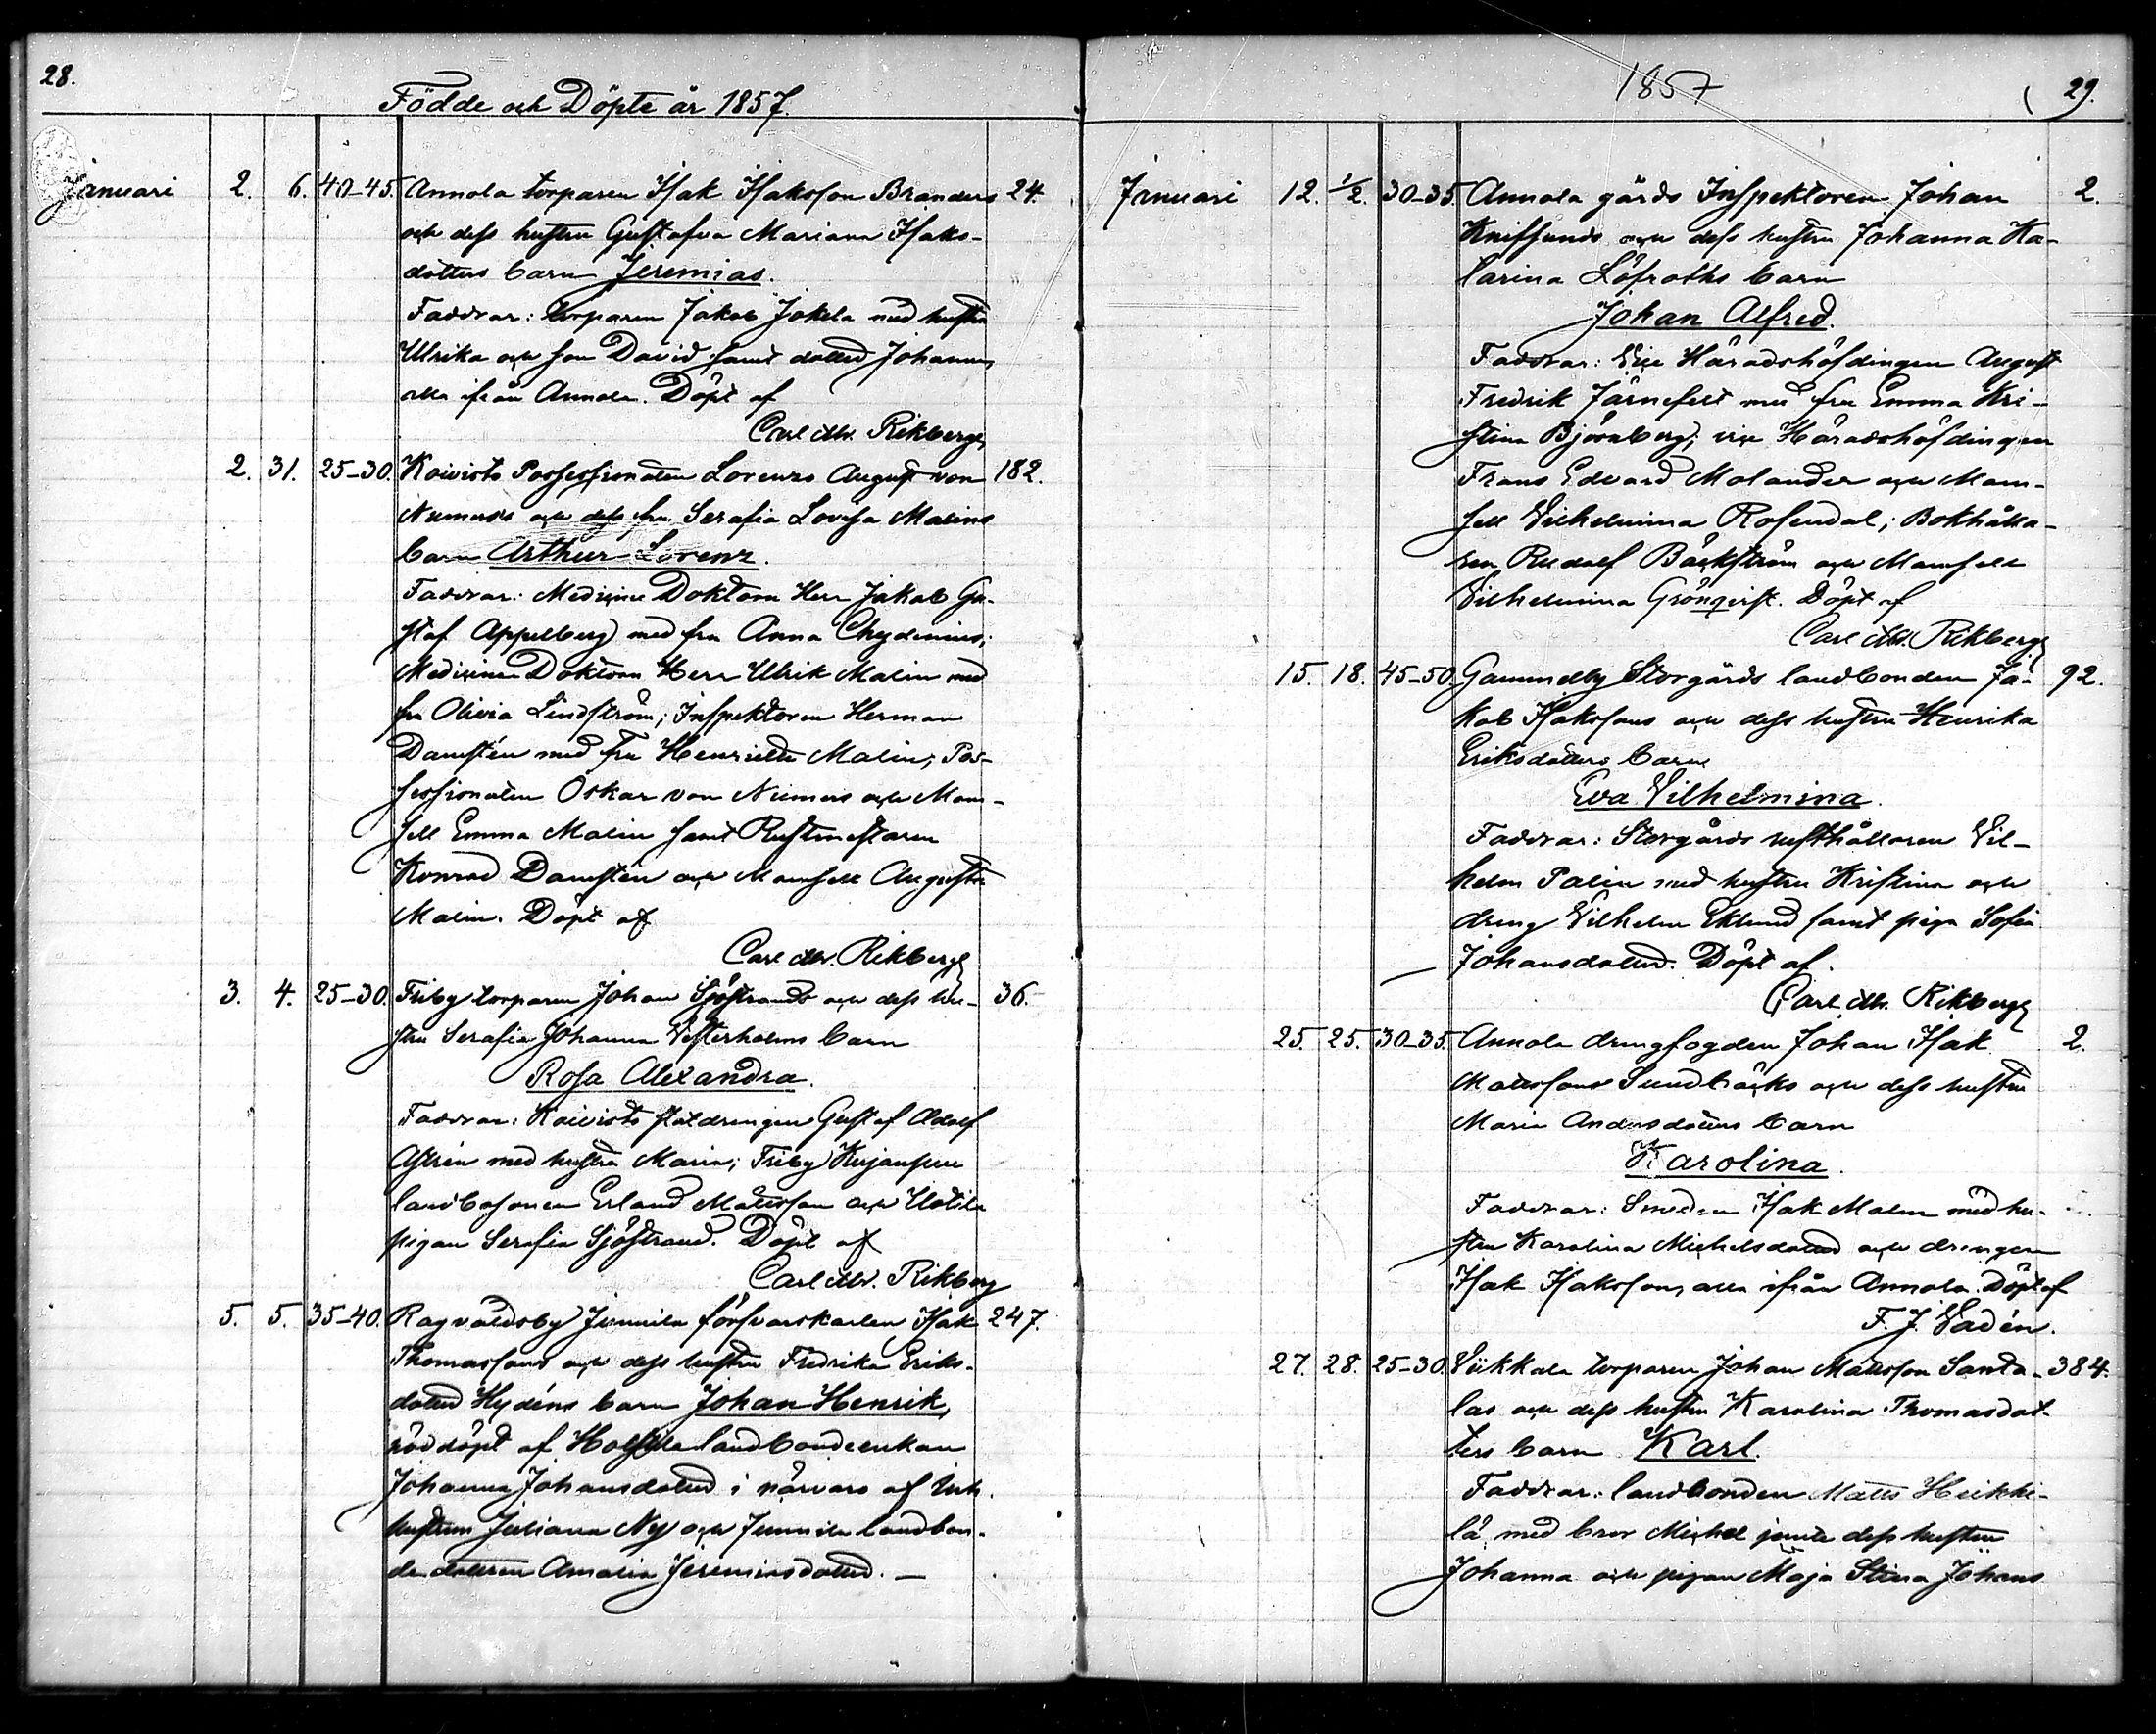 28.
Födde och Döpte år 1857.
Januari 2. 6. 40-45. Annola torparen Isak Isaksson Branders 24.
och dess hustru Gustafva Mariana Isaks-
dotters barn Jeremias.
Faddrar: torparen Jakob Jokela med hustru
Ulrika och son David samt dotter Johanna,
alla ifrån Annola. Döpt af
Carl Mr. Rikberg
2. 31. 25-30. Koivisto Possessionaten Lorenzo August von 182.
Numers och dess fru Serafia Lovisa Malins
barn Arthur Lorenz.
Faddrar: Medicine Doktorn Herr Jakob Gu-
staf Appelberg med fru Anna Chydenius;
Medicine Doktorn Herr Ulrik Malin med
fru Olivia Lindström; Inspektoren Herman
Damstén med fru Henriette Malin; Pos-
sessionaten Oskar von Numers och Mam-
sell Emma Malin samt Rustmästaren
Konrad Damstén och Mamsell Augusta
Malin. Döpt af
Carl Mr. Rikberg
3. 4. 25-30. Friby torparen Johan Sjöstrands och dess hu- 36.
stru Serafia Johanna Vesterholms barn
Rosa Alexandra.
Faddrar: Koivisto statdrengen Gustaf Adolf
Astrén med hustru Maria; Friby
landbosonen Erland Mattsson och Uotila
pigan Serafia Sjöstrand. Döpt af
Carl Mr. Rikberg
5. 5. 35-40. Ragvaldsby Junnila försvarskarlen Isak 247.
Thomassons och dess hustru Fredrika Eriks-
dotter Hydéns barn Johan Henrik,
nöddöpt af landbondeenkan
Johanna Johansdotter i närvaro af
hustrun Juliana Ny och Junnila landbon-
dedotteren Amalia Jeremiasdotter. —
1857 29.
Januari 12. 1/2. 30-35. Annola gårds Inspektoren Johan 2.
Knifsunds och dess hustru Johanna Ka-
tarina Löfroths barn
Johan Alfred.
Faddrar: Vice Häradshöfdingen August
Fredrik Järnefelt med fru Emma Kri-
stina Björnberg; vice Häradshöfdingen
Frans Edvard Molander och Mam-
sell Vilhelmina Rosendal; Bokhålla-
ren Rudolf Bäckström och Mamsell
Vilhelmina Grönqvist. Döpt af
Carl Mr. Rikberg
15. 18. 45-50. Gammelby Storgårds landbonden Ja- 92.
kob Isakssons och dess hustru Henrika
Eriksdotters barn
Eva Vilhelmina.
Faddrar: Storgårds rusthållaren Vil-
helm Palin med hustru Kristina och
dreng Vilhelm Eklund samt piga Sofia
Johansdotter. Döpt af.
Carl Mr. Rikberg
25. 25. 30-35. Annola drengfogden Johan Isak 2.
Mattssons Sundbäcks och dess hustru
Maria Andersdotters barn
Karolina.
Faddrar: Smeden Isak Malm med hu-
stru Karolina Michelsdotter och drengen
Isak Isaksson, alla ifrån Annola. Döpt af
F. J. Vadén.
27. 28. 25-30. Viikkala torparen Johan Mattsson Santa- 384.
las och dess hustru Karolina Thomasdot-
ters barn Karl.
Faddrar: landbonden Matts Heikki-
lä med bror Michel jemte dess hustru
Johanna och pigan Maja Stina Johans